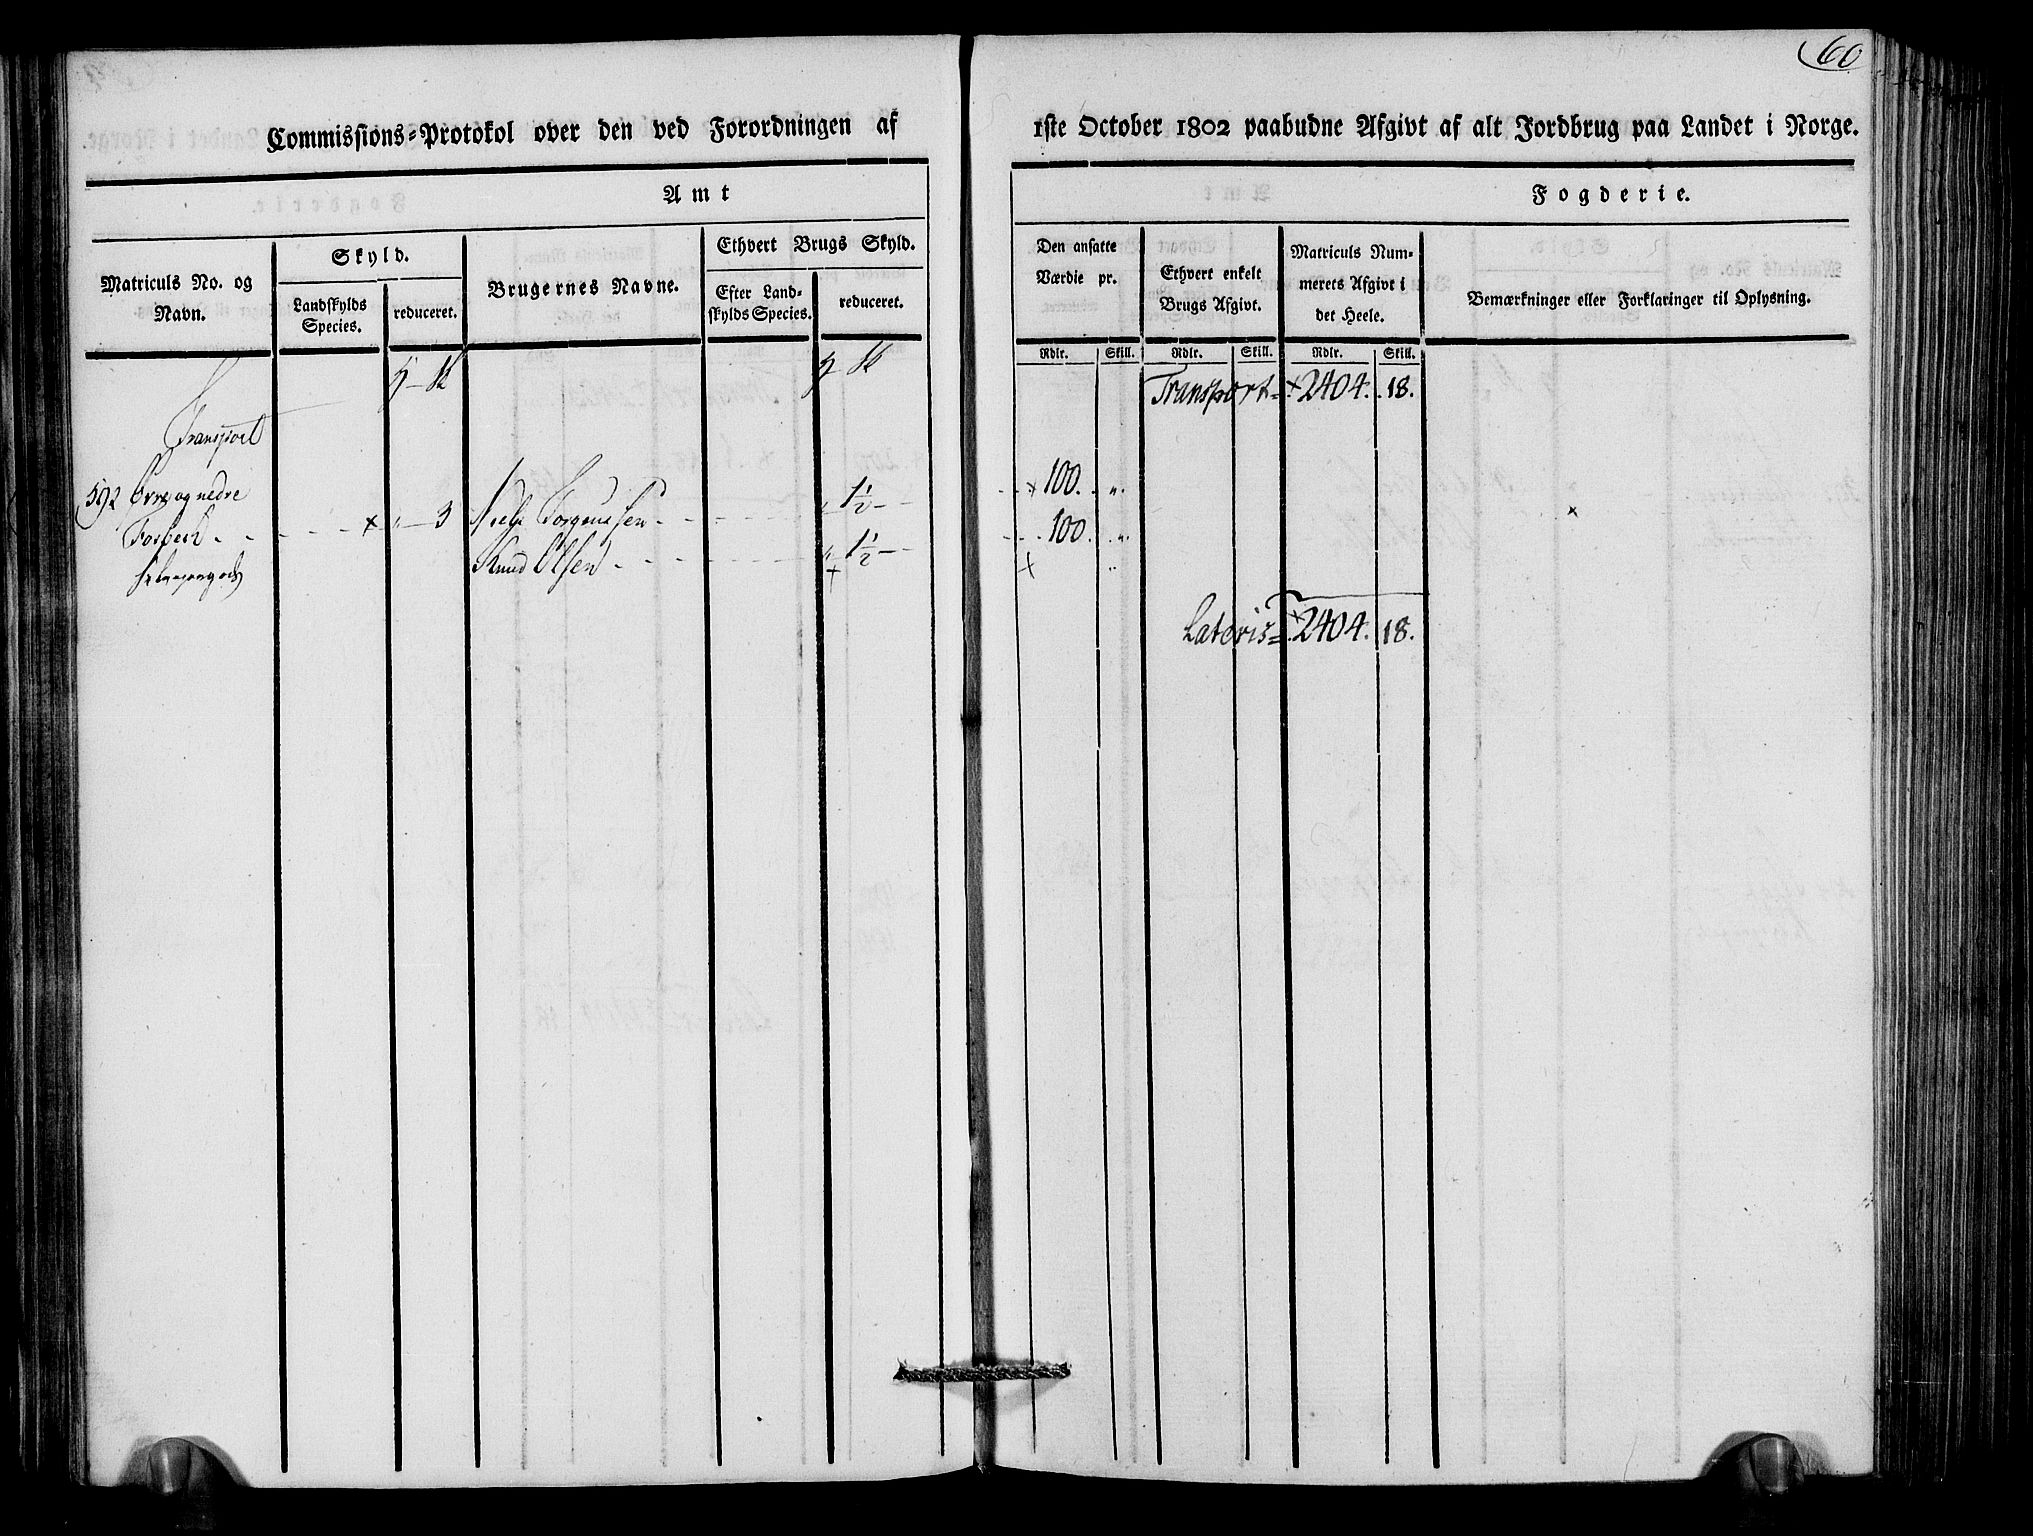 60
Commissions-Protokol over den ved Forordningen af 1ste October 1802 paabudne Afgivt af alt Jordbrug paa Landet i Norge.
Amt Fogderie.
Matriculs No. og Navn.
Skyld.
Landskylds Species.
reduceret.
Brugernes Navne.
Ethvert Brugs Skyld.
Efter Landskylds Species.
reduceret.
Den ansatte Værdie pr.
Ethvert enkelt Brugs Afgivt.
Matriculs Nummerets Afgivt i det Heele.
Bemærkninger eller Forklaringer til Oplysning.
Rdlr. Skill. Rdlr. Skill. Rdlr. Skill.
Transport = 2404. 18.
Transport
592 Øvre og nedre
Fosbech 3 Niels Jørgensen 1½ 100.
Knud Olsen 1½ 100.
Lateris = 2404. 18.